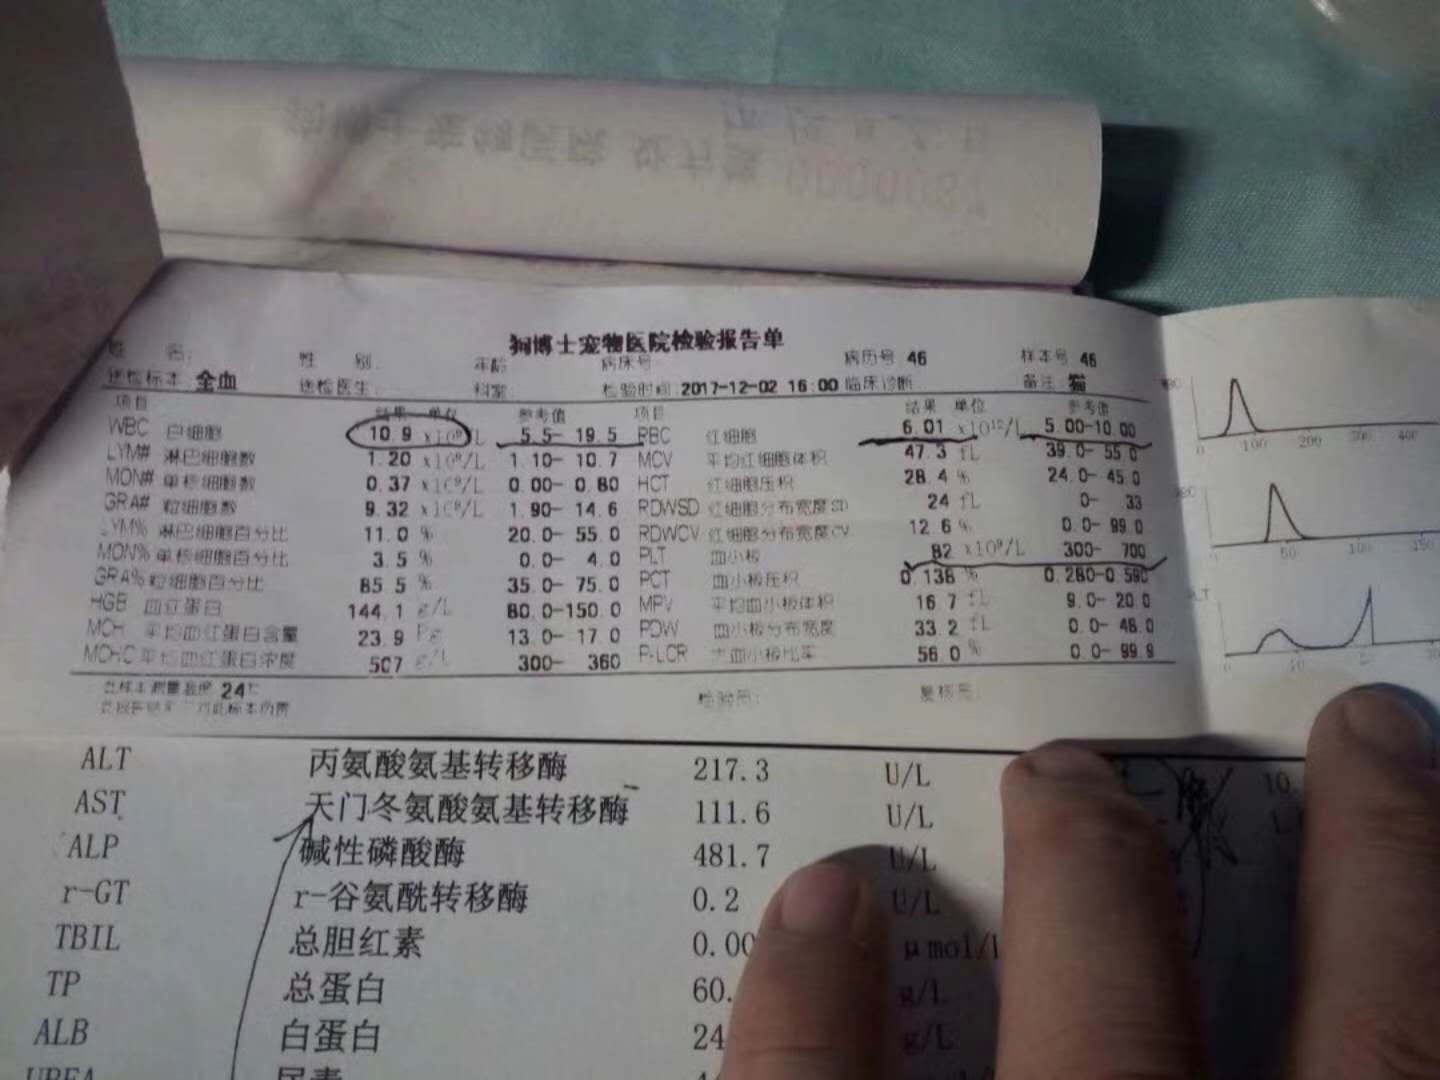 狗博士宠物医院检验报告单
姓 名: 性 别: 年龄: 病床号: 病历号 46 样本号 46
送检标本 全血 送检医生: 科室: 检验时间:2017-12-02 16:00 临床诊断: 备注: 猫
项目 结果 单位 参考值 项目 结果 单位 参考值
WBC 白细胞 10.9 x10⁹/L 5.5- 19.5 RBC 红细胞 6.01 x10¹²/L 5.00-10.00
LYM# 淋巴细胞数 1.20 x10⁹/L 1.10- 10.7 MCV 平均红细胞体积 47.3 fL 39.0- 55.0
MON# 单核细胞数 0.37 x10⁹/L 0.00- 0.80 HCT 红细胞压积 28.4 % 24.0- 45.0
GRA# 粒细胞数 9.32 x10⁹/L 1.90- 14.6 RDWSD 红细胞分布宽度SD 24 fL 0- 33
LYM% 淋巴细胞百分比 11.0 % 20.0- 55.0 RDWCV 红细胞分布宽度CV 12.6 % 0.0- 99.0
MON% 单核细胞百分比 3.5 % 0.0- 4.0 PLT 血小板 82 x10⁹/L 300- 700
GRA% 粒细胞百分比 85.5 % 35.0- 75.0 PCT 血小板压积 0.138 % 0.280-0.580
HGB 血红蛋白 144.1 g/L 80.0-150.0 MPV 平均血小板体积 16.7 fL 9.0- 20.0
MCH 平均血红蛋白含量 23.9 Pg 13.0- 17.0 PDW 血小板分布宽度 33.2 fL 0.0- 48.0
MCHC 平均血红蛋白浓度 507 g/L 300- 360 P-LCR 大血小板比率 56.0 % 0.0- 99.9
此样本测量温度 24℃ 检验员: 复核员:
100 200 300 400
0 50 100 150
0 10
ALT 丙氨酸氨基转移酶 217.3 U/L 10.
AST 天门冬氨酸氨基转移酶 111.6 U/L
ALP 碱性磷酸酶 481.7 U/L
r-GT r-谷氨酰转移酶 0.2 U/L
TBIL 总胆红素 0.00 μmol/
TP 总蛋白 60. g/L
ALB 白蛋白 24 g/L
UREA 尿素